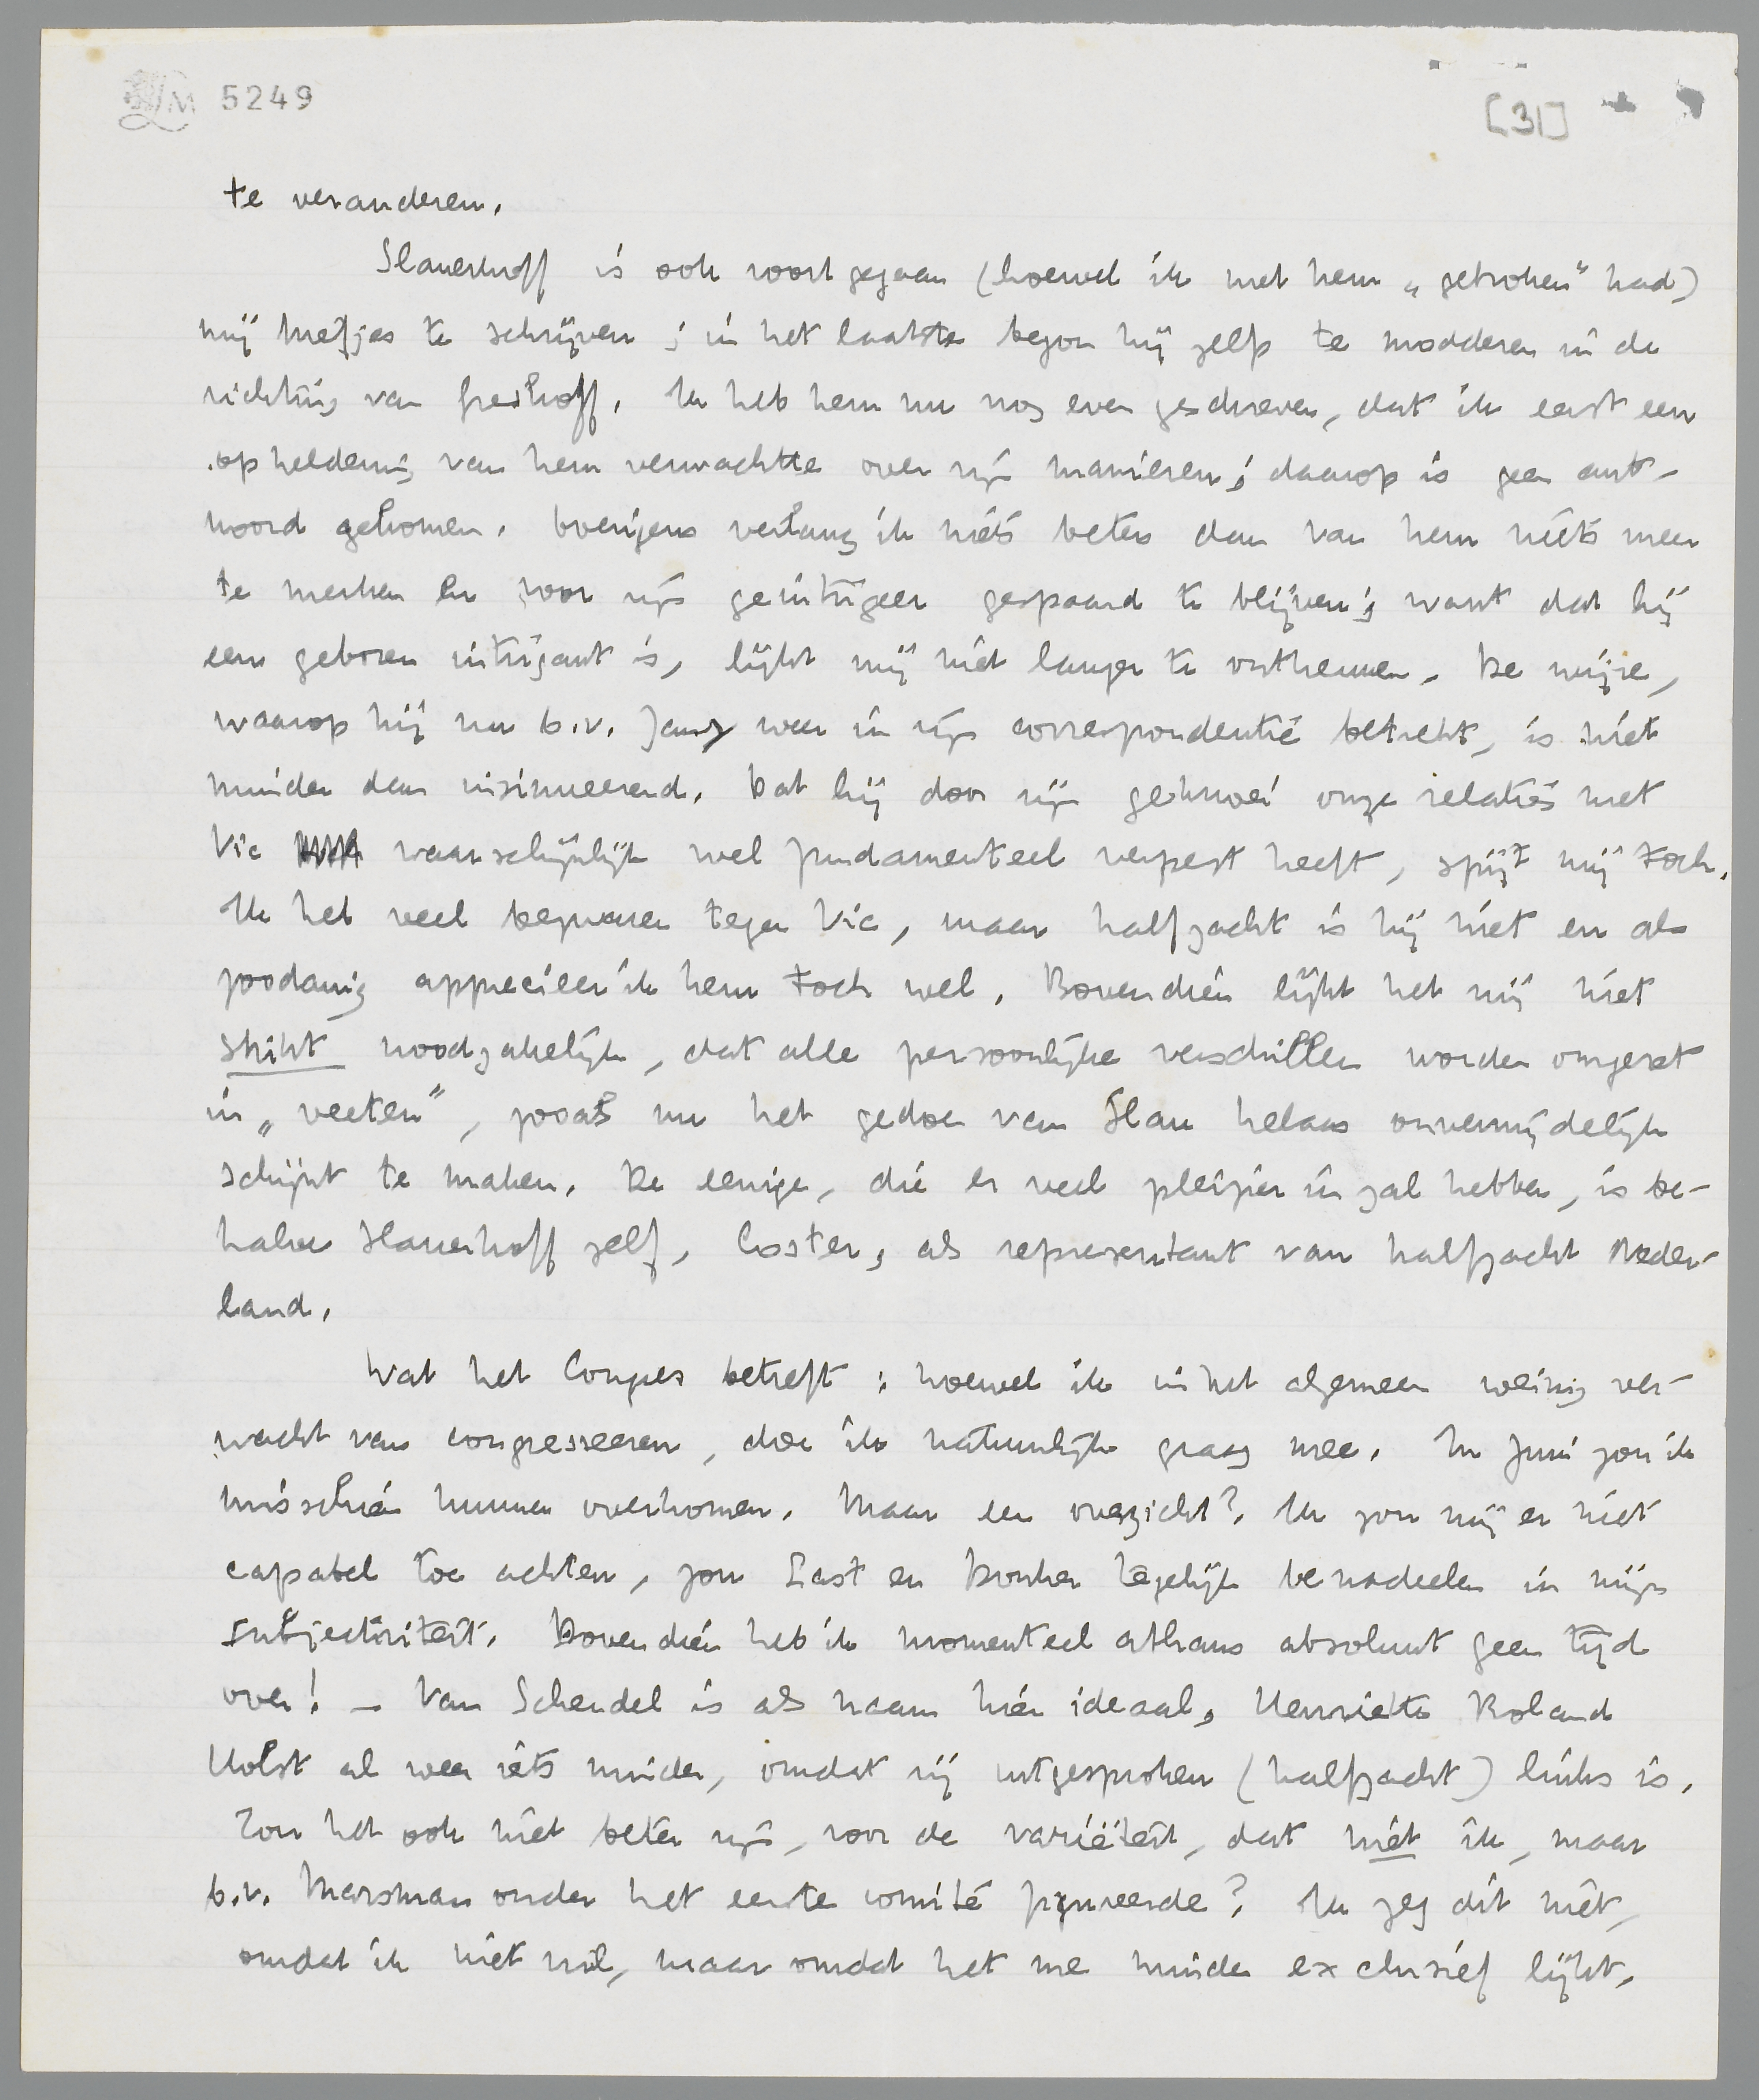 LM 5249
[31]
te veranderen.
Slauerhoff is ook voortgegaan (hoewel ik met hem „gebroken" had)
mij briefjes te schrijven; in het laatste begon hij zelfs te modderen in de
richting van Greshoff. Ik heb hem nu nog even geschreven, dat ik eerst een
opheldering van hem verwachtte over zijn manieren; daarop is geen ant-
woord gekomen. Overigens verlang ik niets beters dan van hem niets meer
te merken en voor zijn geïntrigeer gespaard te blijven; want dat hij
een geboren intrigant is, lijkt mij niet langer te ontkennen. De wijze,
waarop hij nu b.v. Jany weer in zijn correspondentie betrekt, is niet
minder dan insinueerend. Dat hij door zijn geknoei onze relaties met
Vic waarschijnlijk wel fundamenteel verpest heeft, spijt mij toch.
Ik heb veel bezwaren tegen Vic, maar halfzacht is hij niet en als
zoodanig apprecieer ik hem toch wel. Bovendien lijkt het mij niet
strikt noodzakelijk, dat alle persoonlijke verschillen worden omgezet
in „veeten", zooals nu het gedoe van Slau helaas onvermijdelijk
schijnt te maken. De eenige, die er veel pleizier in zal hebben, is be-
halve Slauerhoff zelf, Coster, als representant van halfzacht Neder-
land.
Wat het Congres betreft: hoewel ik in het algemeen weinig ver-
wacht van congresseeren, doe ik natuurlijk graag mee. In Juni zou ik
misschien kunnen overkomen. Maar een overzicht? Ik zou mij er niet
capabel toe achten, zou Last en Donker tegelijk benadeelen in mijn
subjectiviteit. Bovendien heb ik momenteel althans absoluut geen tijd
over! – Van Schendel is als naam hier ideaal, Henriëtte Roland
Holst al weer iets minder, omdat zij uitgesproken (halfzacht) links is.
Zou het ook niet beter zijn, voor de variëteit, dat niet ik, maar
b.v. Marsman onder het eerste comité figureerde? Ik zeg dit niet,
omdat ik niet wil, maar omdat het me minder exclusief lijkt.